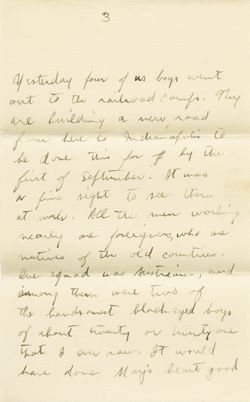 3
Yesterday four of us boys went
out to the railroad camps. They
are building a new road
from here to Indianapolis to
be done this far by the
first of September. It was
a fine sight to see them
at work. All the men working
nearly are foreigners, who are
natives of the old countries.
One squad was Austrians, and
among them were two of
the handsomest black eyed boys
of about twenty or twenty one
that I ever saw. It would
have done Mary's heart good